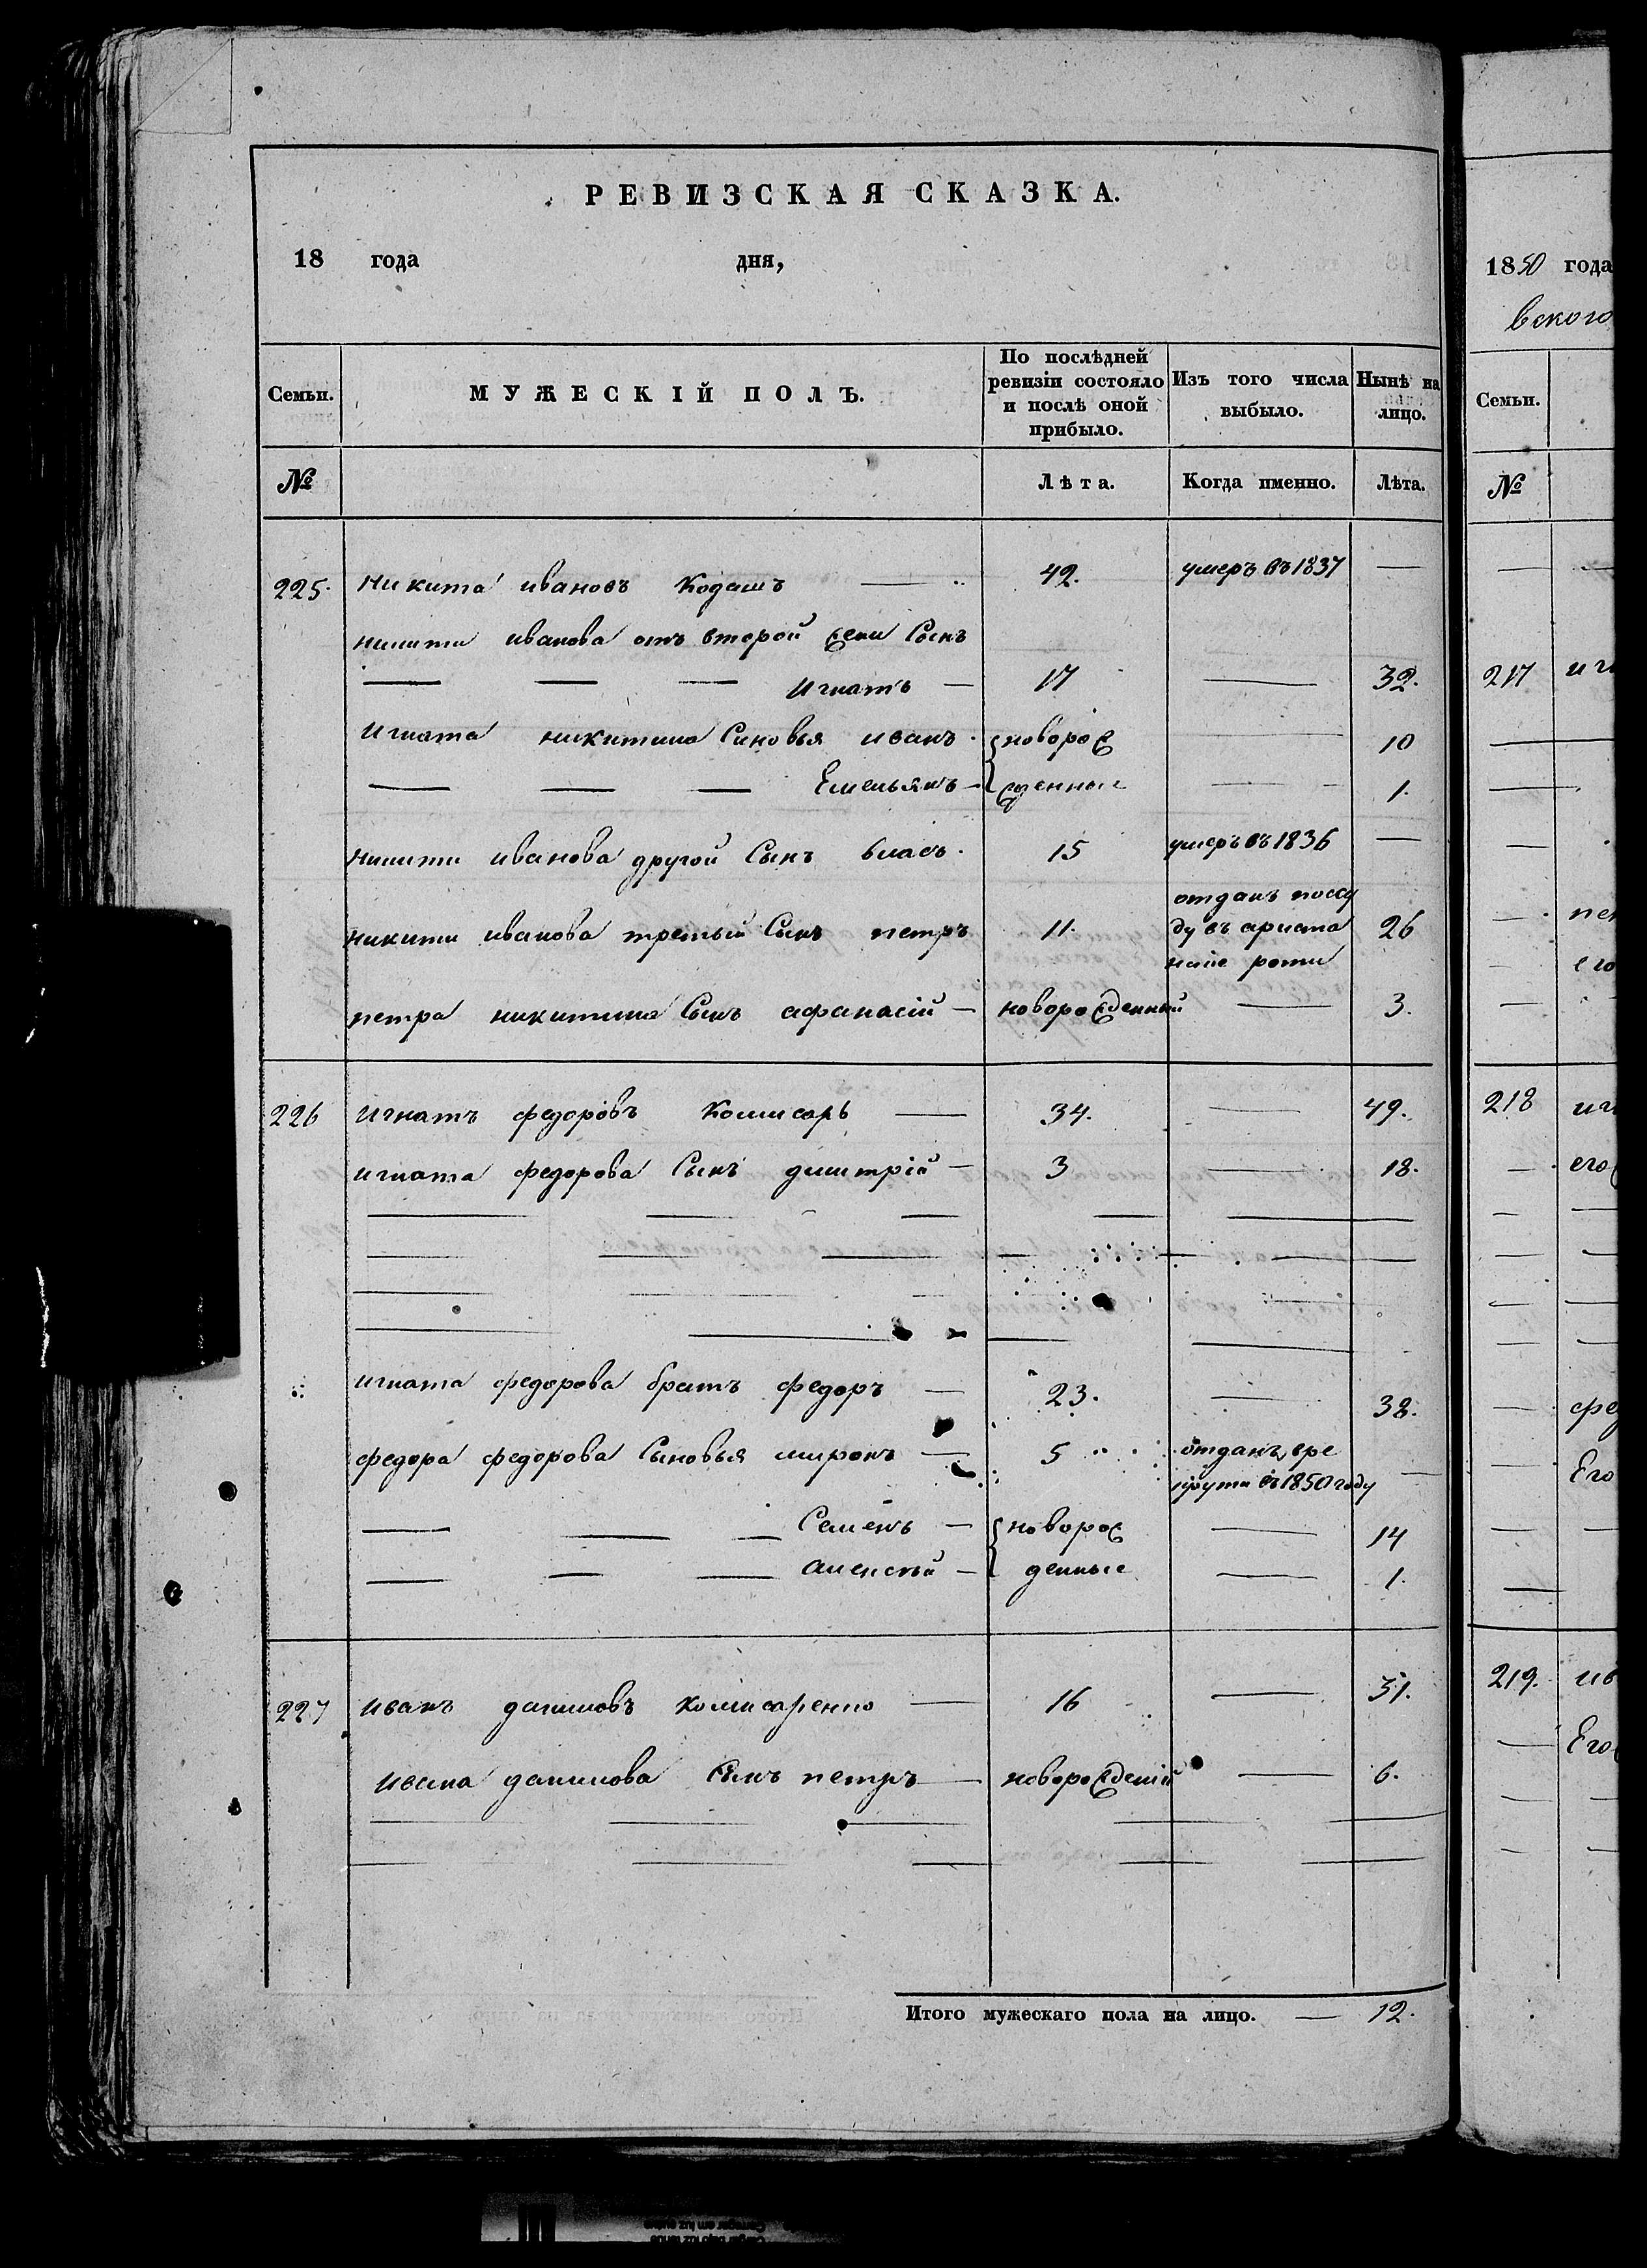 РЕВИЗСКАЯ СКАЗКА.
18 года дня,
Семьи. МУЖЕСКІЙ ПОЛЪ. По послѣдней ревизіи состояло и послѣ оной прибыло. Изъ того числа выбыло. Нынѣ на лицо.
№ Лѣта. Когда именно. Лѣта.
225. Никита ивановъ Кодашъ — 42. умеръ въ 1837 —
никиты иванова отъ второй жены Сынъ
— — — Игнатъ — 17 — 32.
Игната никитина Сыновья иванъ. новорож — 10
— — — Емельянъ — жденные — 1.
никиты иванова другой Сынъ власъ. 15 умеръ въ 1836 —
никиты иванова третьий Сынъ петръ 11. отданъ посу
ду въ ареста 26
нские роты
петра никитина Сынъ афанасій — новорожденный — 3.
226 Игнатъ федоровъ Комисаръ — 34. — 49.
игната федорова Сынъ димитрій — 3 — 18.
игната федорова братъ федоръ — 23. — 38.
федора федорова Сыновья миронъ — 5 отданъ вре
круты въ 1850 году —
— — — Семенъ — новорож — 14
— — — алексѣй — денные — 1.
227 иванъ даниловъ комисаренко — 16 — 31.
ивана данилова Сынъ петръ — новорожденій — 6.
Итого мужескаго пола на лицо. — 12.
1850 года
вского
Семьи.
№
217
218
219.
Его